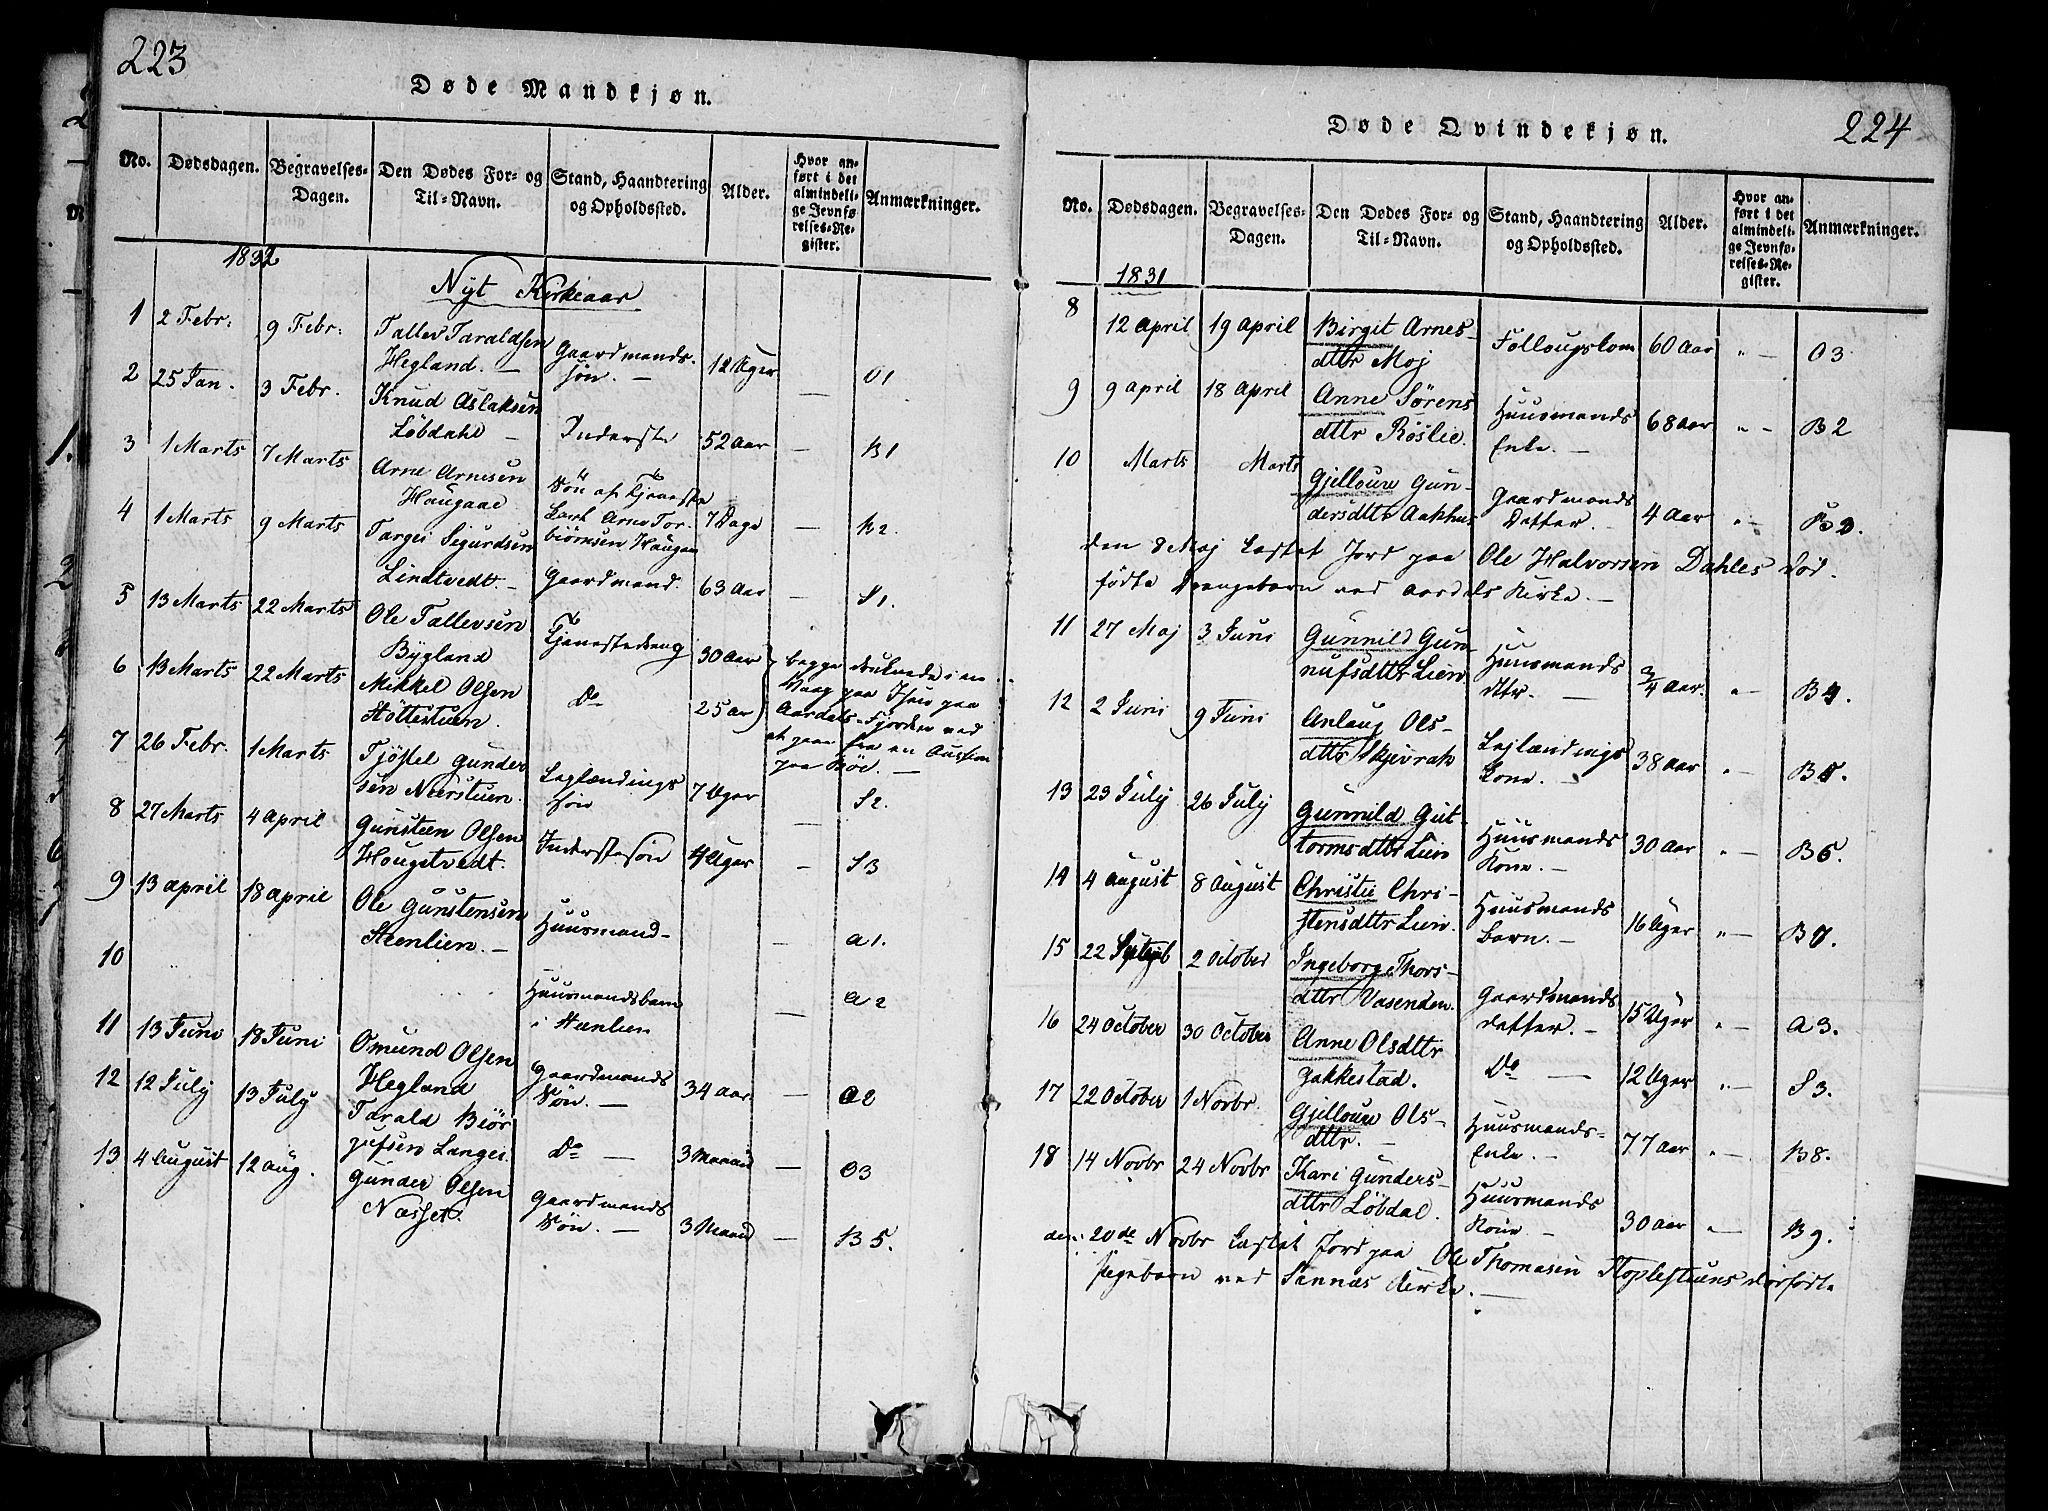 223
Døde Mandkjøn.
No. Dødsdagen. Begravelses-Dagen. Den Dødes For- og Til-Navn. Stand, Haandtering og Opholdssted. Alder. Hvor anført i det almindelige Jevnførelses-Register. Anmærkninger.
1832
Nyt Kirkeaar
1 2 Febr: 9 Febr: Tallev Taraldsen Hegland. — Gaardmands søn. — 12 Uger — O1
2 25 Jan. 3 Febr. Knud Aslaksen Løbdahl — Inderste 52 Aar — B1
3 1 Marts 7 Marts Arne Arnesen Haugaae Søn af Tjeneste Karl Arne Torbiørnsen Haugaa 7 Dage — B2.
4 1 Marts 9 Marts Targei Sigurdsen Lindtvedt. — Gaardmand. 63 Aar — S1.
5 13 Marts 22 Marts Ole Tallevsen Bygland Tjenestedreng 30 Aar
6 13 Marts 22 Marts Mikkel Olsen Støttestuen. Do 25 Aar
begge druknede i en
Vaag paa Isen paa
Aardals-Fjorden ved
at gaae fra en Auction
paa Bøe. —
7 26 Febr. 1 Marts Tjøstel Gundersen Neerstuen. Leglændings søn 7 Uger — S2.
8 27 Marts 4 April Gunsteen Olsen Hougetvedt. Inderstesøn 4 Uger — S3
9 13 April 18 April Ole Gunstensen Steenlien. — Huusmand — — A1.
10 Huusmandsbarn i Steenlien — A2
11 13 Juni 18 Juni Omund Olsen Hegland Gaardmands Søn. — 34 Aar — O2
12 12 July 13 July Tarald Biørgufsen Langei. Do — 3 Maand — O3
13 4 August 12 Aug. Gunder Olsen Næsset. Gaardmands Søn. — 3 Maand — B5.
224
Døde Qvindekjøn.
No. Dødsdagen. Begravelses-Dagen. Den Dødes For- og Til-Navn. Stand, Haandtering og Opholdssted. Alder. Hvor anført i det almindelige Jevnførelses-Register. Anmærkninger.
1831
8 12 April 19 April Birgit Arnesdttr Moj Follougskom 60 Aar " — O3
9 9 April 18 April Anne Sørensdttr Røslie. Huusmands Enke. — 68 Aar " — B2
10 Marts Marts Gjelloue Gundersdttr Aakhus Gaardmands Datter. — 4 Aar " — B3.
den 8 Maj Kastet Jord paa Ole Halvorsen Dahles død
fødte Drengebarn ved Aardals Kirke. —
11 27 Maj 3 Juni Gunnild Gunnufsdttr Lien Huusmands dtr. — 3/4 Aar. " — B4.
12 2 Juni 9 Juni Anlaug Olsdttr Skjevrak Lejlændings Kone. — 38 Aar " — B5.
13 23 July 26 July Gunnild Guttormsdttr Lien Huusmands Kone. — 30 Aar " — B6.
14 4 August 8 August Christie Christensdttr Lien. Huusmands barn. — 16 Uger " — B7.
15 22 Septb 2 October Ingeborg Thorsdttr Vasenden. Gaardmands datter. — 15 Uger " — A3.
16 24 October 30 October Anne Olsdttr Jakkestad. Do — 12 Uger " — S3.
17 22 October 1 Novbr. Gjelloue Olsdttr. — Huusmands-Enke. — 77 Aar " — B8.
18 14 Novbr 24 Novbr Kari Gundersdttr Løbdal. Huusmands Kone. — 30 Aar " — B9.
den 20de Novbr Kastet Jord paa Ole Thomasen Stoplestuens dødfødte
Pigebarn ved Sannæs Kirke. —